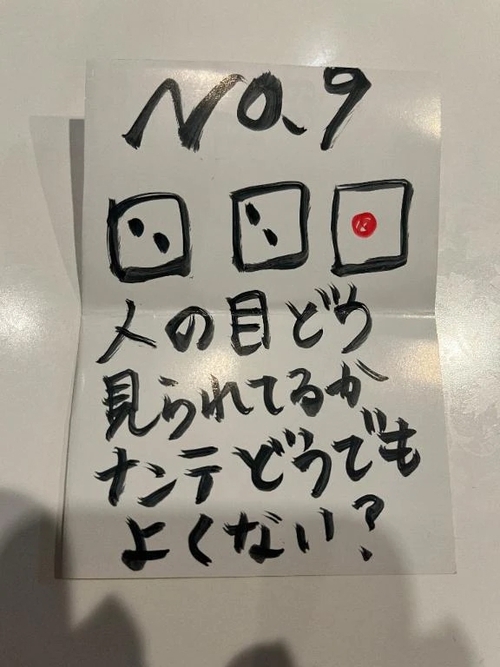 NO.9
人の目どう
見られてるか
ナンテどうでも
よくない?